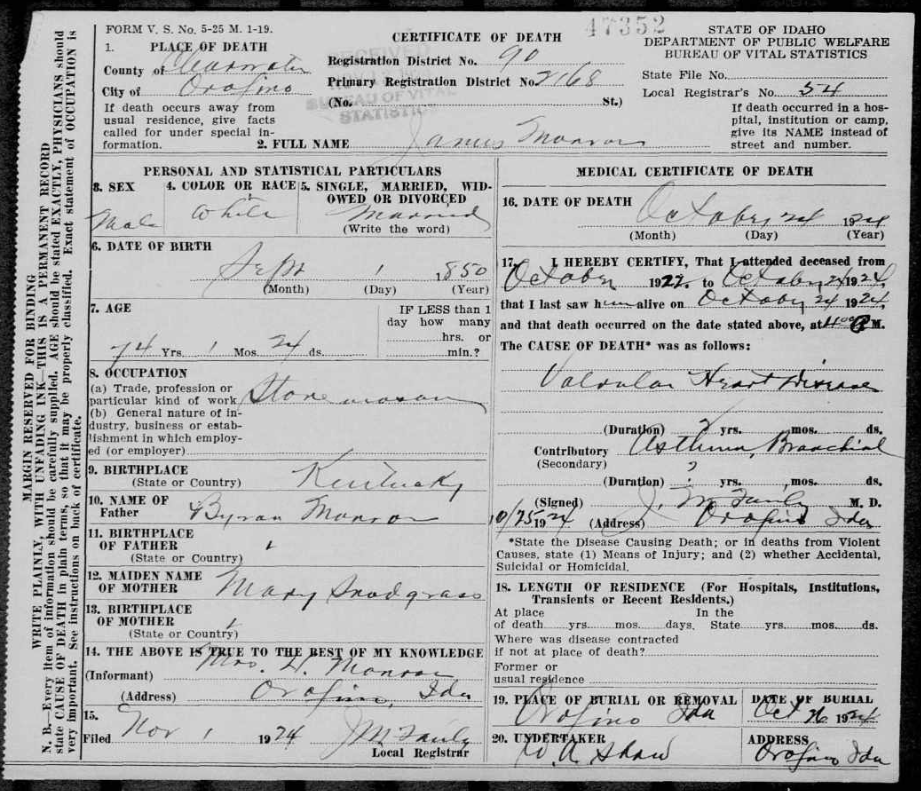 FORM V. S. No. 5-25 M. 1-19.
47352
CERTIFICATE OF DEATH
STATE OF IDAHO
DEPARTMENT OF PUBLIC WELFARE
BUREAU OF VITAL STATISTICS
State File No.
Local Registrar's No. 54
1. PLACE OF DEATH
County of Clearwater
City of Orofino
Registration District No. 90
Primary Registration District No. 2168
(No. St.)
RECEIVED
BUREAU OF VITAL
STATISTICS
If death occurs away from
usual residence, give facts
called for under special in-
formation.
If death occurred in a hos-
pital, institution or camp,
give its NAME instead of
street and number.
2. FULL NAME James Monroe
MARGIN RESERVED FOR BINDING
WRITE PLAINLY, WITH UNFADING INK—THIS IS A PERMANENT RECORD
N. B.—Every item of information should be carefully supplied. AGE should be stated EXACTLY, PHYSICIANS should
state CAUSE OF DEATH in plain terms, so that it may be properly classified. Exact statement of OCCUPATION is
very important. See instructions on back of certificate.
PERSONAL AND STATISTICAL PARTICULARS
3. SEX
Male
4. COLOR OR RACE
White
5. SINGLE, MARRIED, WID-
OWED OR DIVORCED
Married
(Write the word)
6. DATE OF BIRTH
Sept 1 1850
(Month) (Day) (Year)
7. AGE
74 Yrs. 1 Mos. 24 ds.
IF LESS than 1
day how many
hrs. or
min.?
8. OCCUPATION
(a) Trade, profession or
particular kind of work Stone mason
(b) General nature of in-
dustry, business or estab-
lishment in which employ-
ed (or employer)
9. BIRTHPLACE
(State or Country) Kentucky
10. NAME OF
Father Byron Monroe
11. BIRTHPLACE
OF FATHER
(State or Country)
12. MAIDEN NAME
OF MOTHER Mary Snodgrass
13. BIRTHPLACE
OF MOTHER
(State or Country)
14. THE ABOVE IS TRUE TO THE BEST OF MY KNOWLEDGE
(Informant) Mrs. Monroe
(Address) Orofino, Ida
15.
Filed Nov 1 1924 J M Fairly
Local Registrar
MEDICAL CERTIFICATE OF DEATH
16. DATE OF DEATH
October 24 1924
(Month) (Day) (Year)
17. I HEREBY CERTIFY, That I attended deceased from
October 1922. to October 24 1924.
that I last saw him alive on October 24 1924.
and that death occurred on the date stated above, at 4 M.
The CAUSE OF DEATH* was as follows:
Valvular Heart Disease
(Duration) ? yrs. mos. ds.
Contributory Asthma, Bronchial
(Secondary)
(Duration) ? yrs. mos. ds.
(Signed) J. M Fairly M. D.
10/25 1924 (Address) Orofino Ida
*State the Disease Causing Death; or in deaths from Violent
Causes, state (1) Means of Injury; and (2) whether Accidental,
Suicidal or Homicidal.
18. LENGTH OF RESIDENCE (For Hospitals, Institutions,
Transients or Recent Residents.)
At place In the
of death yrs. mos. days. State yrs. mos. ds.
Where was disease contracted
if not at place of death?
Former or
usual residence
19. PLACE OF BURIAL OR REMOVAL
Orofino Ida
DATE OF BURIAL
Oct 26 1924
20. UNDERTAKER
W A Shaw
ADDRESS
Orofino Ida